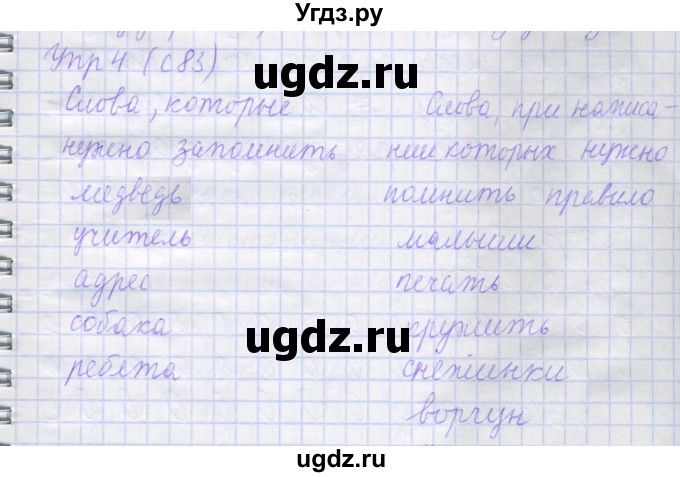 Угдз.ру
Упр 4 (с 83)
ugdz.ru
Слова, которые Слова, при написа-
нужно запомнить нии которых нужно
медведь помнить правило
учитель малыши
адрес печать
ugdz.ru
собака кружить
ребята снежинки
ворчун
ugdz.ru